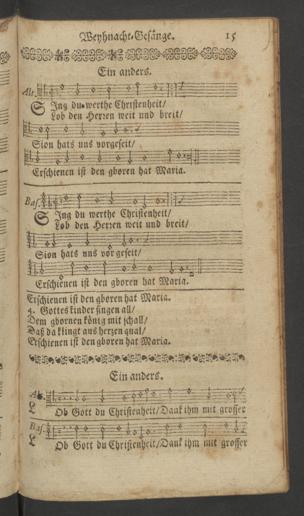 Weyhnacht-Gesänge. 15
Ein anders.
Alt.
SIng du werthe Christenheit/
Lob den Herren weit und breit/
Sion hats uns vorgseit/
Erschienen ist den gboren hat Maria.
Bas.
SIng du werthe Christenheit/
Lob den Herren weit und breit/
Sion hats uns vor gseit/
Erschienen ist den gboren hat Maria.
Erschienen ist den gboren hat Maria.
3. Gottes kinder singen all/
Dem gbornen könig mit schall/
Daß da klingt aus herzen qual/
Erschienen ist den gboren hat Maria.
Ein anders.
Alt.
LOb Gott du Christenheit/Dank ihm mit grosser
Bas.
LOb Gott du Christenheit/Dank ihm mit grosser